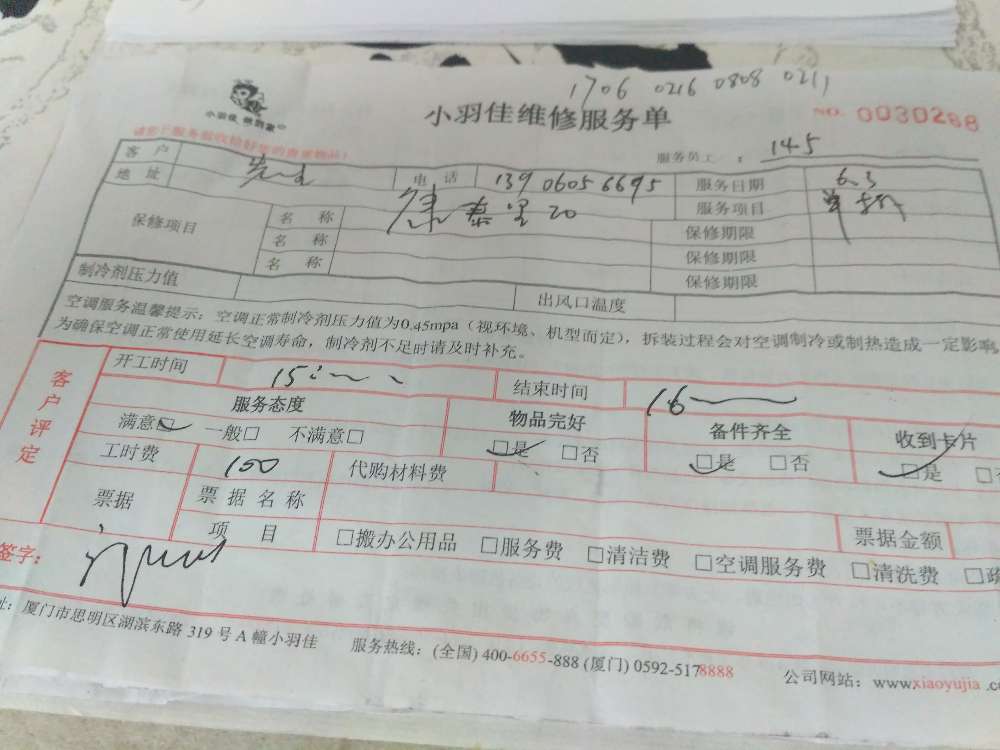 1706 0216 0808 0211
小羽佳 您到家
小羽佳维修服务单
NO. 0030268
服务员工: 145
客户 先生 电话 13906056695 服务日期 6.3
地址 康泰里20 服务项目 单拆
保修项目 名称 保修期限
名称 保修期限
名称 保修期限
制冷剂压力值 出风口温度
空调服务温馨提示:空调正常制冷剂压力值为0.45mpa(视环境、机型而定),拆装过程会对空调制冷或制热造成一定影响
为确保空调正常使用延长空调寿命,制冷剂不足时请及时补充。
客户评定
开工时间 15: 结束时间 16
服务态度 物品完好 备件齐全 收到卡片
满意☑ 一般□ 不满意□ ☑是 □否 ☑是 □否 ☑是 □否
工时费 100 代购材料费
票据 票据名称 票据金额
项目 □搬办公用品 □服务费 □清洁费 □空调服务费 □清洗费 □疏
签字:
址:厦门市思明区湖滨东路 319 号 A 幢小羽佳 服务热线:(全国) 400-6655-888 (厦门) 0592-5178888 公司网站:www.xiaoyujia.co